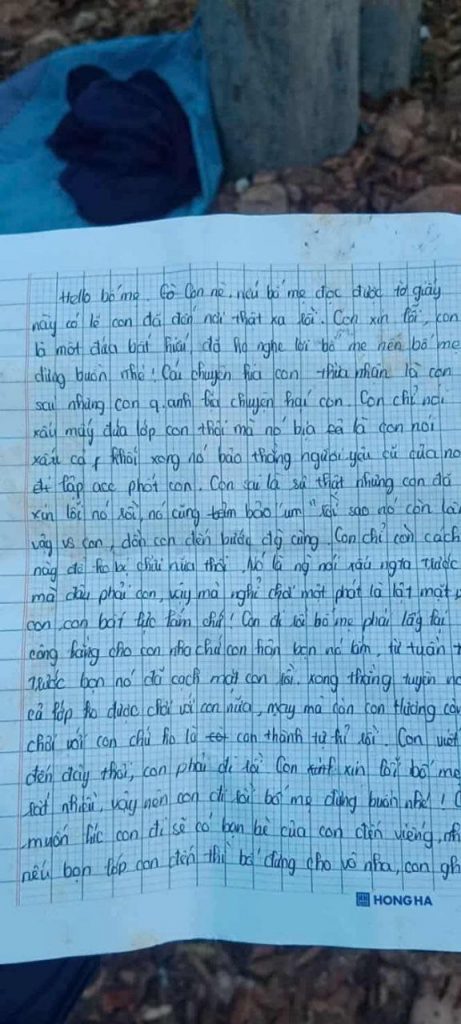 Hello bố mẹ. Cô Con nè, nếu bố mẹ đọc được tờ giấy
này có lẽ con đã đến nơi thật xa rồi. Con xin lỗi, con
là một đứa bất hiếu, đã ko nghe lời bố mẹ nên bố mẹ
đừng buồn nhé! Cái chuyện kia con thừa nhận là con
sai nhưng con q.anh bịa chuyện hại con. Con chỉ nói
xấu mấy đứa lớp con thôi mà nó bịa là con nói
xấu cả khối xong nó bảo thằng người yêu cũ của nó
lập acc phốt con. Con sai là sự thật nhưng con đã
xin lỗi nó rồi, nó cũng bảo "um" rồi sao nó còn làm
vậy vs con, dồn con đến bước đg cùng. Con chỉ còn cách
này để ko bị chửi nữa thôi. Nó là ng nói xấu ngta trước
mà đâu phải con, vậy mà nghỉ chơi một phát là lật mặt
con, con bất lực lắm chứ! Con đi rồi bố mẹ phải lấy lại
công bằng cho con nha chứ con hận bọn nó lắm, từ tuần
trước bọn nó đã cạch mặt con rồi, xong thằng tuyên
cả lớp ko được chơi với con nữa, may mà còn con thương
chơi với con chứ ko là con thành tự kỉ rồi. Con viết
đến đây thôi, con phải đi rồi. Con xin lỗi bố mẹ
rất nhiều, vậy nên con đi rồi bố mẹ đừng buồn nhé!
muốn lúc con đi sẽ có bạn bè của con đến viếng,
nếu bạn lớp con đến thì bố đừng cho vô nha, con
HONG HA